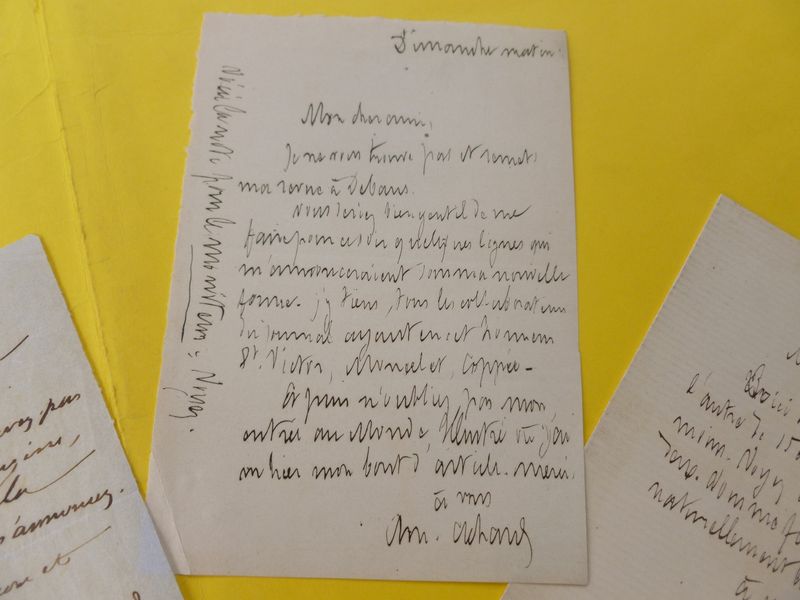 Dimanche matin.
Mon cher ami,
Je ne vous trouve pas et remets
ma revue à Debans.
Vous seriez bien gentil de me
faire pour ce soir quelques lignes qui
m'annonceraient sous ma nouvelle
forme. J'y tiens, tous les collaborateurs
du journal ayant eu cet honneur
St. Victor, Monselet, Coppée -
Et puis n'oubliez pas mon
entrée au Monde Illustré où j'ai
vu hier mon bout d'article. merci.
à vous
Am. Achard
Voici la note pour le moniteur: Voyez.
pas
la
s'annoncer.
et
Voici
d'autre
Voyez
naturellement